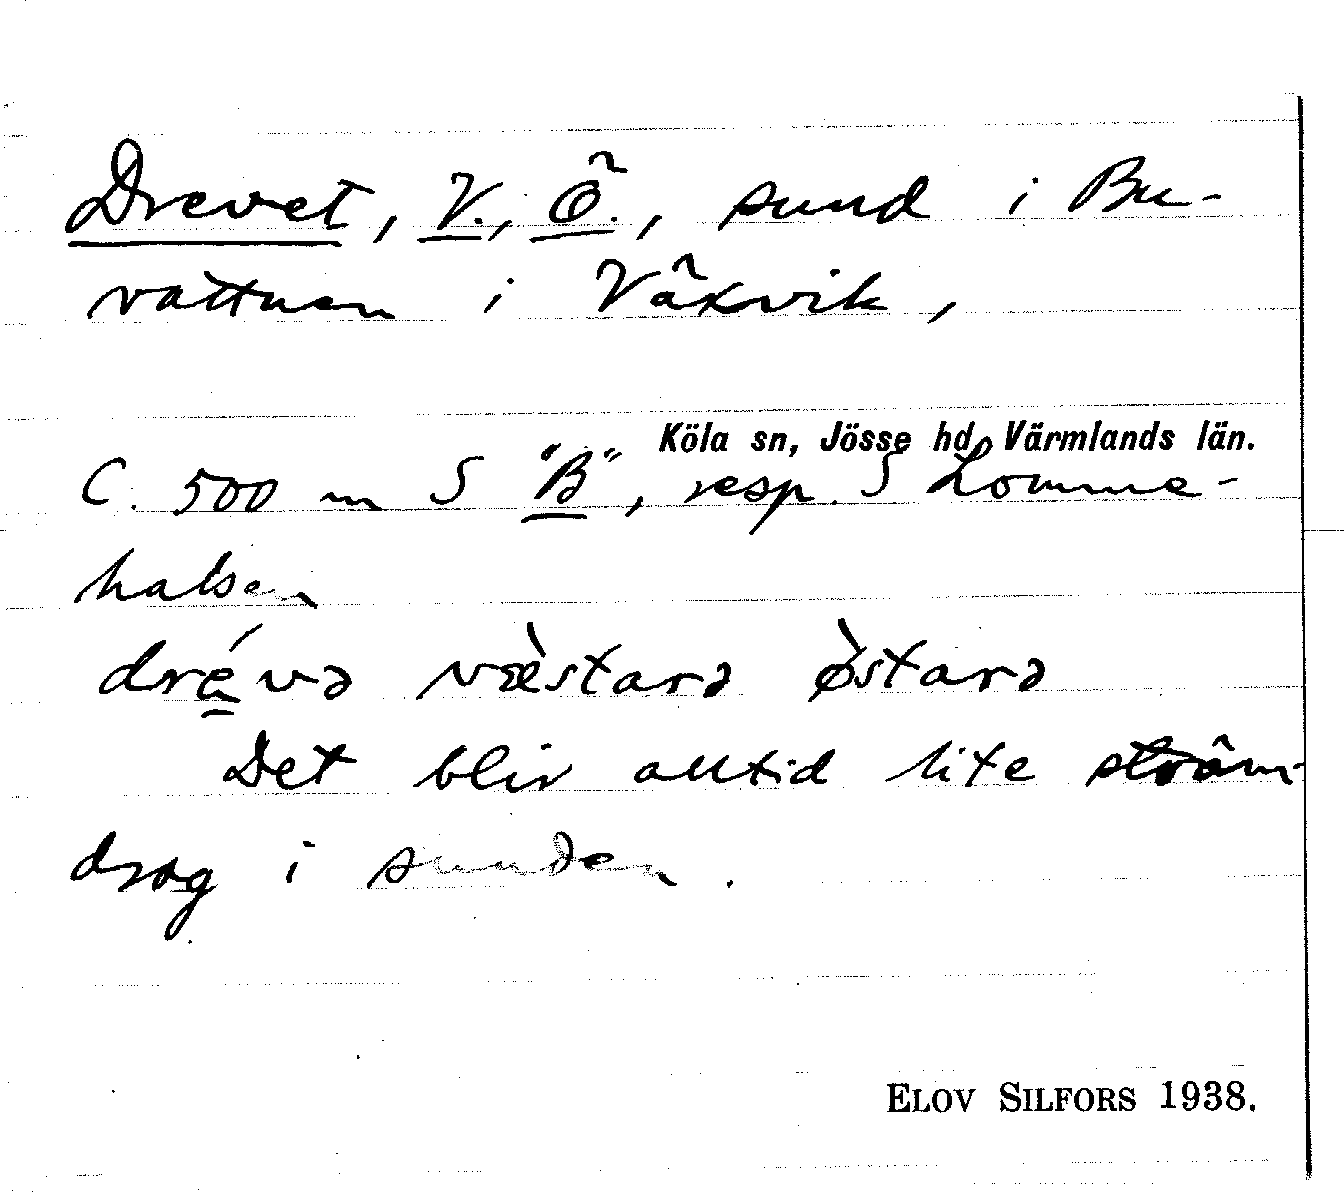 Drevet, V., Ö., sund i Bu-
vattnen i Växvik,
Köla sn, Jösse hd, Värmlands län.
C. 500 m S "B", resp. S Lomme-
halsen
drévə væ̀starə ø̀starə
Det blir alltid lite ström-
drag i sunden.
ELOV SILFORS 1938.